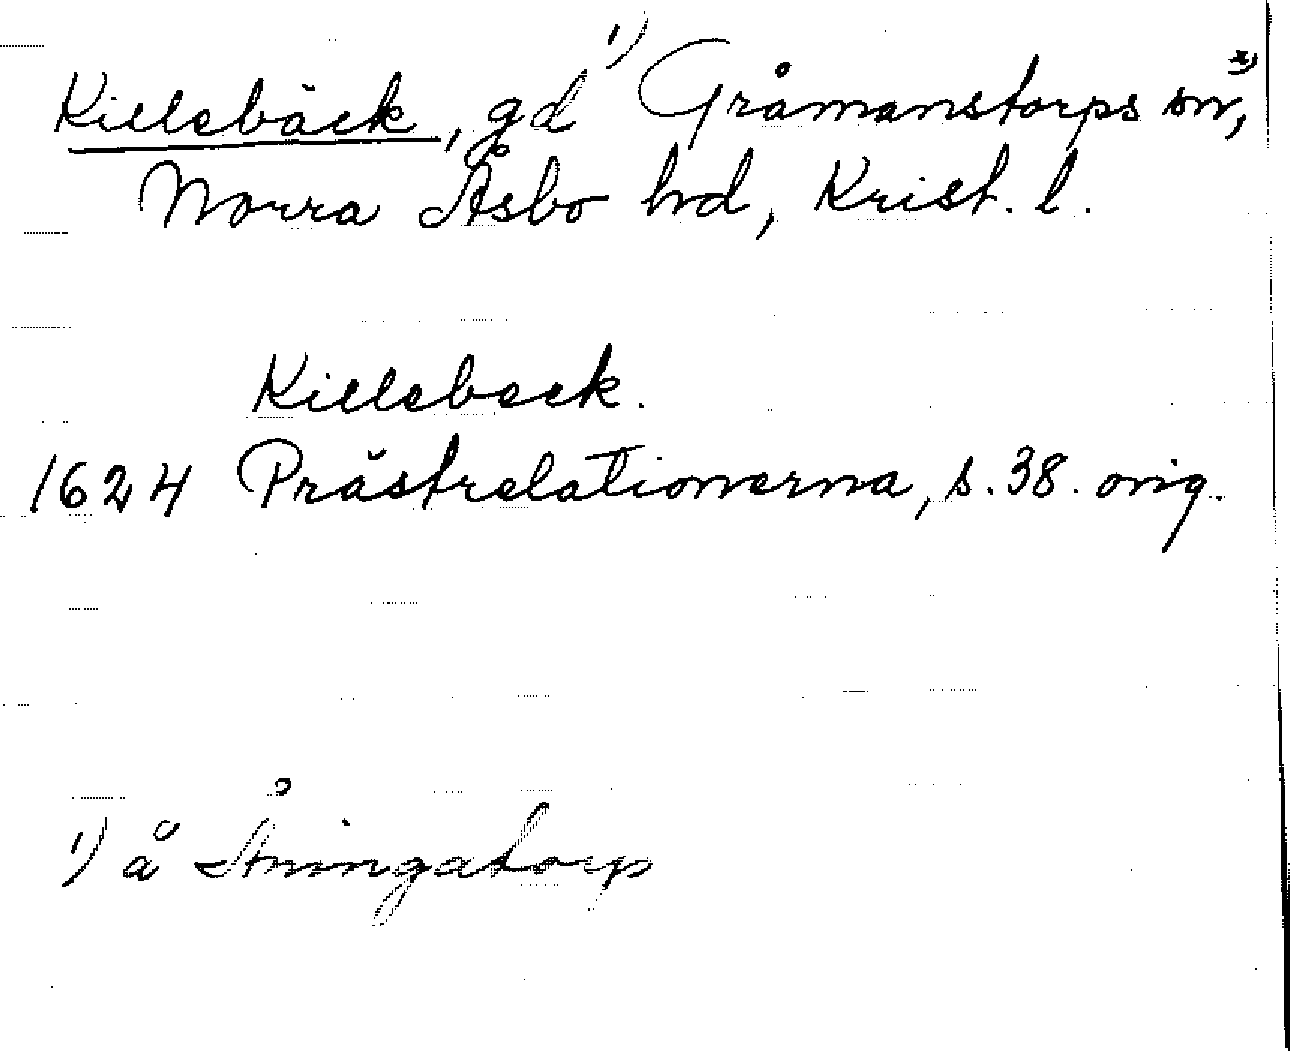 Killebäck, gd 1) Gråmanstorps sn, x)
Norra Åsbo hd, Krist. l.
Killebeck.
1624 Prästrelationerna, s. 38. orig.
1) å Åningatorp